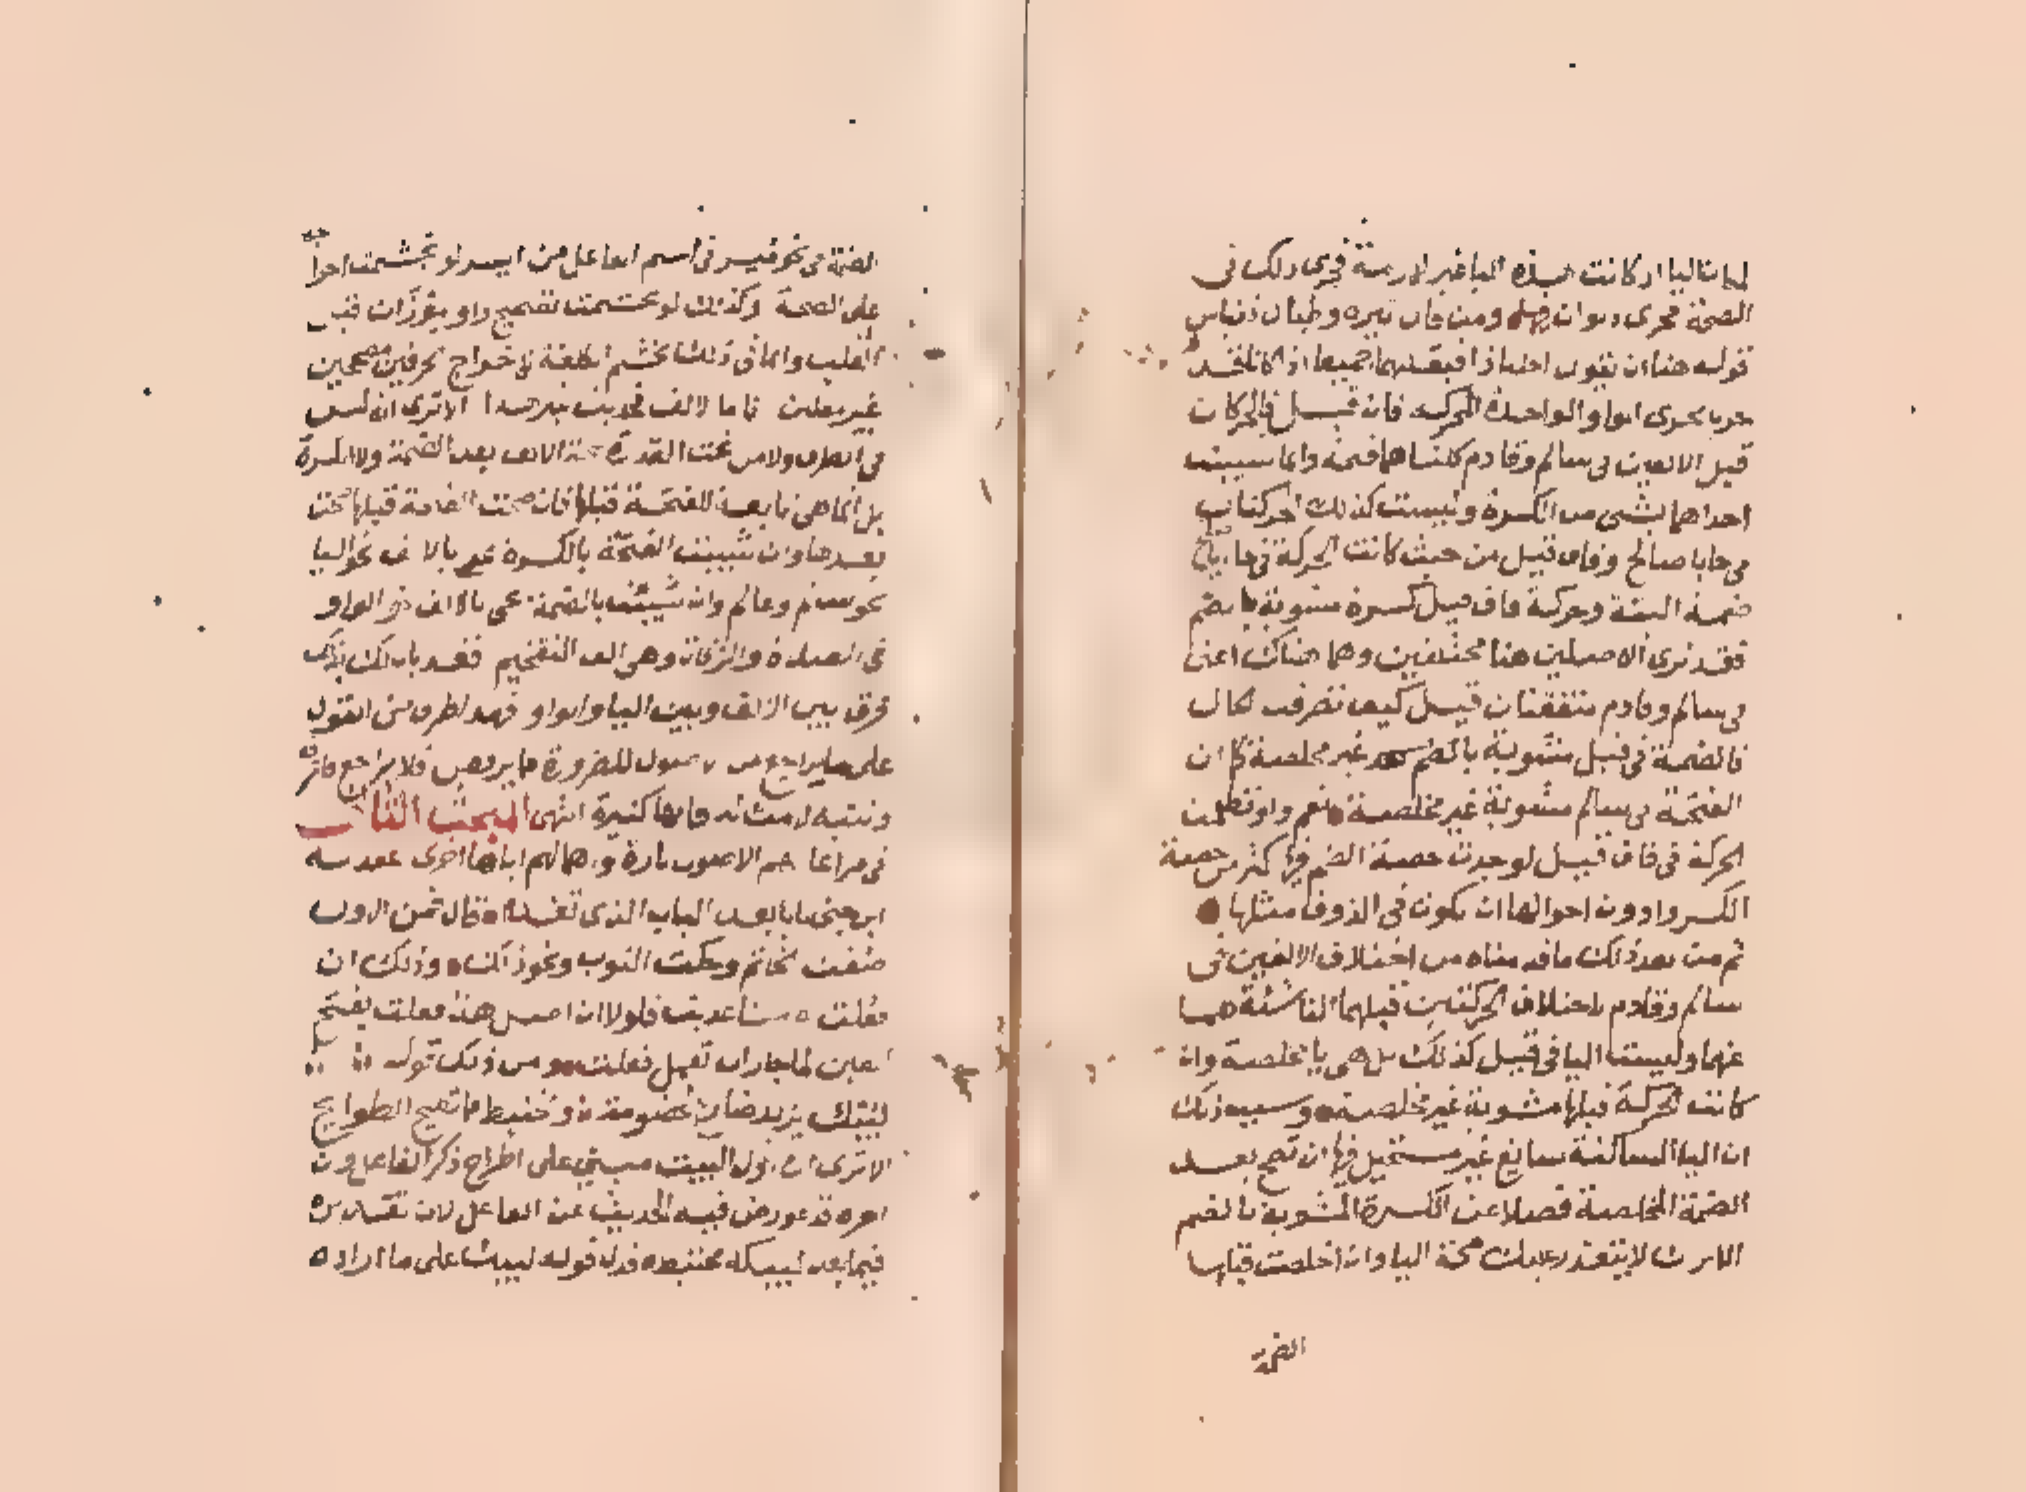 الياء اذ كانت هذه اليا غير لازمة فجرى ذلك في
الصحة مجرى ديوان ومن قال ثيرة وطيال فقياس
قوله هنا ان تقول فيقلبهما جميعا اذ كانا قد
جريا مجرى الواو الواحدة المتحركة فان قيل فالحركات
قبل الالفين في سالم وقادم كلتاهما فتحة وانما شيبت
احداهما بشي من الكسرة وليست كذلك الحركتان
في حا باصالح وقاف قيل من حيث كانت الحركة في حا
ضمة البتة وحركة قاف قيل كسرة مشوبة بالضم
فقد ترى الاصلين هنا مختلفين وهما هناك اعني
في سالم وقادم متفقتان قيل كيف تصرفت الحال
فالضمة في قيل مشوبة بالضم غير مخلصة كما ان
الفتحة في سالم مشوبة غير مخلصة نعم ولو تطعمت
الحركة في قاف قيل لوجدت حصة الضم فيها اكثر من حصة
الكسر وادون احوالها ان يكون في الذوق مثلها
ثم من بعد ذلك ما قدمناه من اختلاف الالفين في
سالم وقادم باختلاف الحركتين قبلهما الناشئة هما
عنهما وليست اليا في قيل كذلك بل هي يا مخلصة وان
كانت الحركة قبلها مشوبة غير مخلصة وسبب ذلك
ان اليا الساكنة سايغ غير مستحيل فيها ان تصح بعد
الضمة المخلصة فضلا عن الكسرة المشوبة بالضم
الا ترك لا يتعذر عليك صحة اليا وان اخلصت قبلها
الضمة
الضمة في نحو ميسر في اسم الفاعل من ايسر لو تجشمت اخراجه
على الصحة وكذلك لو تجشمت تصحيح واو موزان قبل
القلب وانما في ذلك تجشم الكلفة لاخراج الحرفين مصححين
غير معلين فاما الالف فحديث غير هذا الا ترى انه ليس
في الطوق ولا من تحت القدرة صحة الالف بعد الضمة ولا الكسرة
بل انما هي تابعة للفتحة قبلها فان صحت الفتحة قبلها صحت
بعدها وان شيبت الفتحة بالكسرة نحي بالالف نحو اليا
نحو سالم وعالم وان شيبت بالضمة نحي بالالف نحو الواو
في الصلاة والزكاة وهي الف التفخيم فقد بان لك بذلك
فرق بين الالف وبين اليا والواو فهذا طرف من القول
على ما يراجع من الاصول للضرورة مما يرفض فلا يراجع فاعرفه
وتنبه لامثاله فانها كثيرة انتهى المبحث الثاني
في مراعاتهم الاصول تارة واهمالهم اياها اخرى عقد له
ابن جني بابا بعد الباب الذي تقدم قال فمن الاول
صغت الخاتم وحكت الثوب ونحو ذلك وذلك ان
فعلت متعديت فلولا ان اصل هذا فعلت بفتح
العين لما جاز ان تعمل فعلت ومن ذلك قوله
ليبك يزيد ضارع لخصومة ومختبط مما تطيح الطوائح
الا ترى ان اول البيت مبني على اطراح ذكر الفاعل وان
اخره قد عوود فيه الحديث عن الفاعل لان تقديره
فيما بعد ليبكه مختبط فدل قوله ليبك على ما اراده